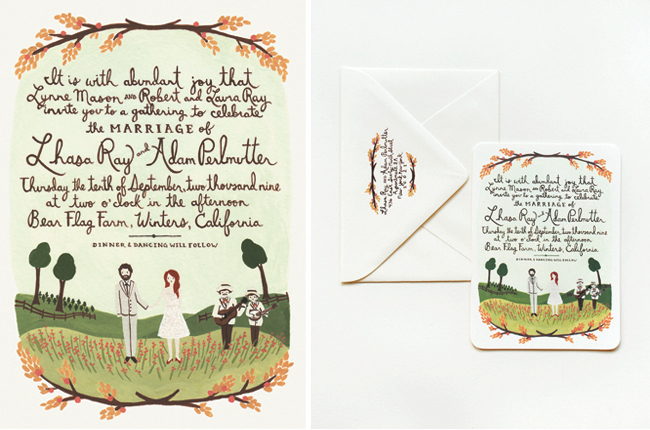 It is with abundant joy that
Lynne Mason AND Robert and Laura Ray
invite you to a gathering to celebrate
the MARRIAGE of
Lhasa Ray and Adam Perlmutter
Thursday the tenth of September, two thousand nine
at two o'clock in the afternoon
Bear Flag Farm, Winters, California
DINNER & DANCING WILL FOLLOW
Lhasa Ray and Adam Perlmutter
It is with abundant joy that
Lynne Mason AND Robert and Laura Ray
invite you to a gathering to celebrate
the MARRIAGE of
Lhasa Ray & Adam Perlmutter
Thursday the tenth of September, two thousand nine
at two o'clock in the afternoon
Bear Flag Farm, Winters, California
DINNER & DANCING WILL FOLLOW